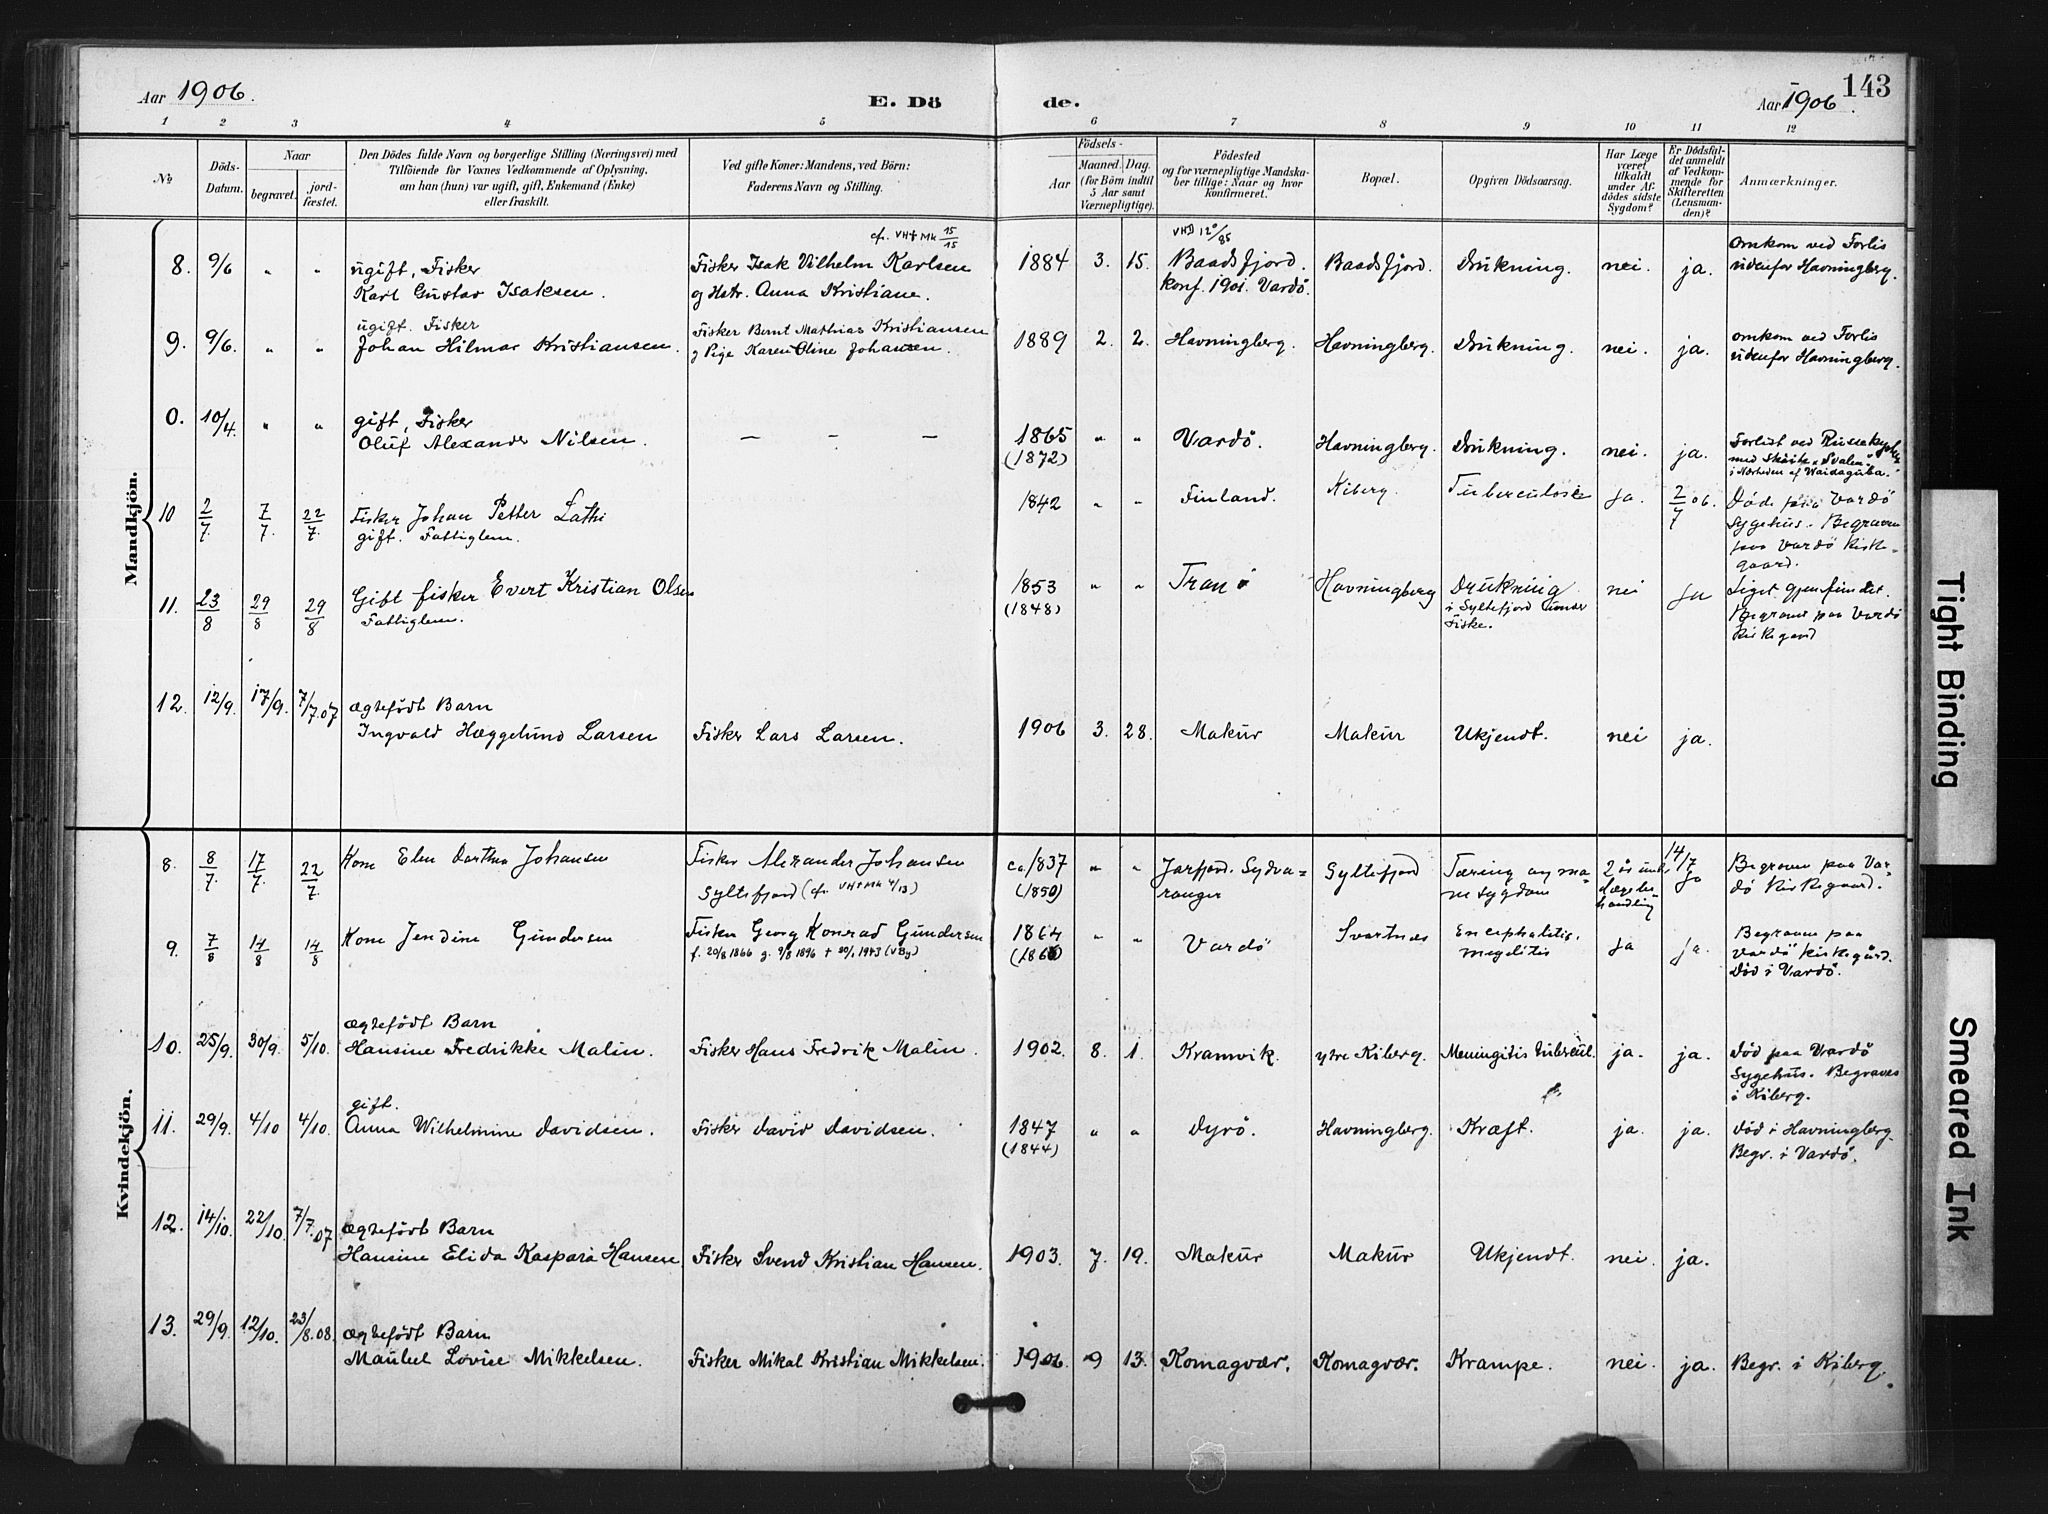 Aar 1906.
E. Dö
de.
Aar 1906.
143
1 2 3 4 5 6 7 8 9 10 11 12
No
Döds-
Datum.
Naar
begravet.
jord-
fæstet.
Den Dödes fulde Navn og borgerlige Stilling (Næringsvei) med
Tilföiende for Voxnes Vedkommende af Oplysning,
om han (hun) var ugift, gift, Enkemand (Enke)
eller fraskilt.
Ved gifte Koner: Mandens, ved Börn:
Faderens Navn og Stilling.
Födsels-
Aar
Maaned. Dag.
(for Börn indtil
5 Aar samt
Værnepligtige).
Födested
og for værnepligtige Mandska-
ber tillige: Naar og hvor
konfirmeret.
Bopæl.
Opgiven Dödsaarsag.
Har Læge
været
tilkaldt
under Af-
dödes sidste
Sygdom?
Er Dödsfal-
det anmeldt
af Vedkom-
mende for
Skifteretten
(Lensman-
den)?
Anmærkninger.
Mandkjön.
cfr. VH+Mk 15/15
8. 9/6 " " ugift, Fisker
Karl Gustav Isaksen.
Fisker Isak Vilhelm Karlsen
og Hstr. Anna Kristiane.
1884 3. 15. Baadsfjord.
konf. 1901. Vardö.
Baadsfjord. Drukning. nei. ja.
Omkom ved Forlis
udenfor Havningberg.
9. 9/6. " " ugift. Fisker
Johan Hilmar Kristiansen.
Fisker Bernt Mathias Kristiansen
og Pige Karen Oline Johansen.
1889 2. 2. Havningberg. Havningberg. Drukning. nei. ja.
omkom ved Forlis
udenfor Havningberg.
0. 10/4. " " gift, Fisker
Oluf Alexander Nilsen.
— — —
1865
(1872)
" " Vardö. Havningberg. Drukning. nei. ja.
Forlist ved Russekysten
med Sköite "Svalen"
i Nærheden af Waidaguba.
10 2/7. 7/7. 22/7. Fisker Johan Petter Lathi
gift. Fattiglem.
1842 " " Finland. Kiberg. Tuberculose ja. 2/7 06.
Döde paa Vardö
Sygehus. Begraven
paa Vardö Kirke-
gaard.
11. 23/8 29/8 29/8 Gift fisker Evert Kristian Olsen
Fattiglem.
1853
(1848)
" " Tranö Havningberg Drukning
i Syltefjord under
Fiske.
nei ja
Liget gjenfundet.
Begraves paa Vardö
Kirkegaard
12. 12/9. 17/9. 7/7.07 ægtefödt Barn
Ingvald Hæggelund Larsen
Fisker Lars Larsen.
1906 3. 28. Makur Makur Ukjendt. nei ja.
Kvindekjön.
8. 8/7. 17/7. 22/7. Kone Elen Dorthea Johansen
Fisker Alexander Johansen
Syltefjord (cfr. VH+Mk 4/13)
ca 1837
(1850)
" " Jarfjord. Sydva-
ranger
Syltefjord Tæring og ma-
nesygdom
2 år under
Lægebe-
handling
14/7 ja
Begraven paa Var-
dö Kirkegaard.
9. 7/8 14/8 14/8 Kone Jendine Gundersen
Fisker Georg Konrad Gundersen
f. 20/8 1866 g. 9/8 1896 + 20/1 1943 (VBy)
1864
" " Vardö Svartnes Encephalitis.
ja ja.
Begraven paa
Vardö Kirkegård.
Död i Vardö.
10. 25/9. 30/9. 5/10. ægtefödt Barn
Hansine Fredrikke Malin.
Fisker Hans Fredrik Malin.
1902. 8. 1. Kramvik. ytre Kiberg. Meningitis tubercul. ja. ja.
Död paa Vardö
Sygehus. Begraves
i Kiberg.
11. 29/9. 4/10 4/10. gift.
Anna Wilhelmine Davidsen.
Fisker David Davidsen.
1847
(1844)
" " Dyrö. Havningberg. Kræft. ja. ja.
Död i Havningberg.
Begr. i Vardö.
12. 14/10. 22/10. 7/7.07 ægtefödt Barn
Hansine Elida Kaspara Hansen
Fisker Svend Kristian Hansen.
1903. 7. 19. Makur Makur Ukjendt. nei. ja.
13. 29/9. 12/10. 23/8.08. ægtefödt Barn
Maubel Lovise Mikkelsen.
Fisker Mikal Kristian Mikkelsen.
1906. 9 13. Komagvær. Komagvær. Krampe. nei. ja. Begr. i Kiberg.
Tight Binding
Smeared Ink